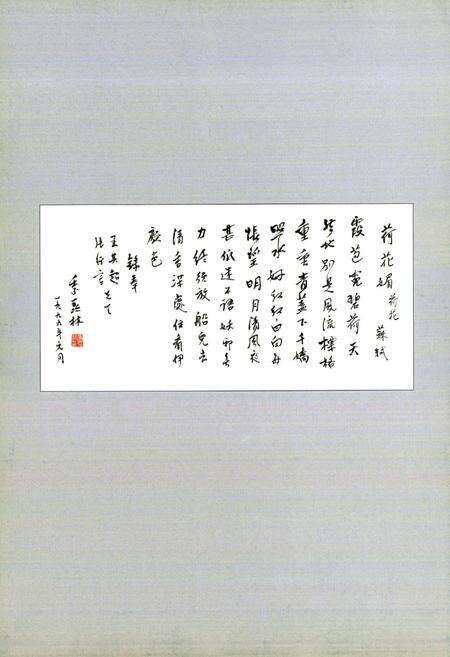 荷花媚 荷花 蘇軾
霞苞霓碧荷天
然地別是風流標格
重重青蓋下千嬌
照水好紅紅白白每
悵望明月清風夜
甚低迷不語妖邪無
力終須放船兒去
清香深處住看伊
顏色
錄奉
王其超
張行言先生
季羨林
一九九五年元月